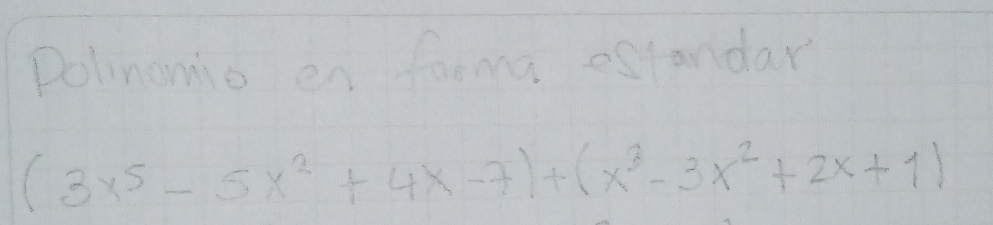 Polinomio en forma estandar
(3x⁵ - 5x² + 4x - 7) + (x³ - 3x² + 2x + 1)